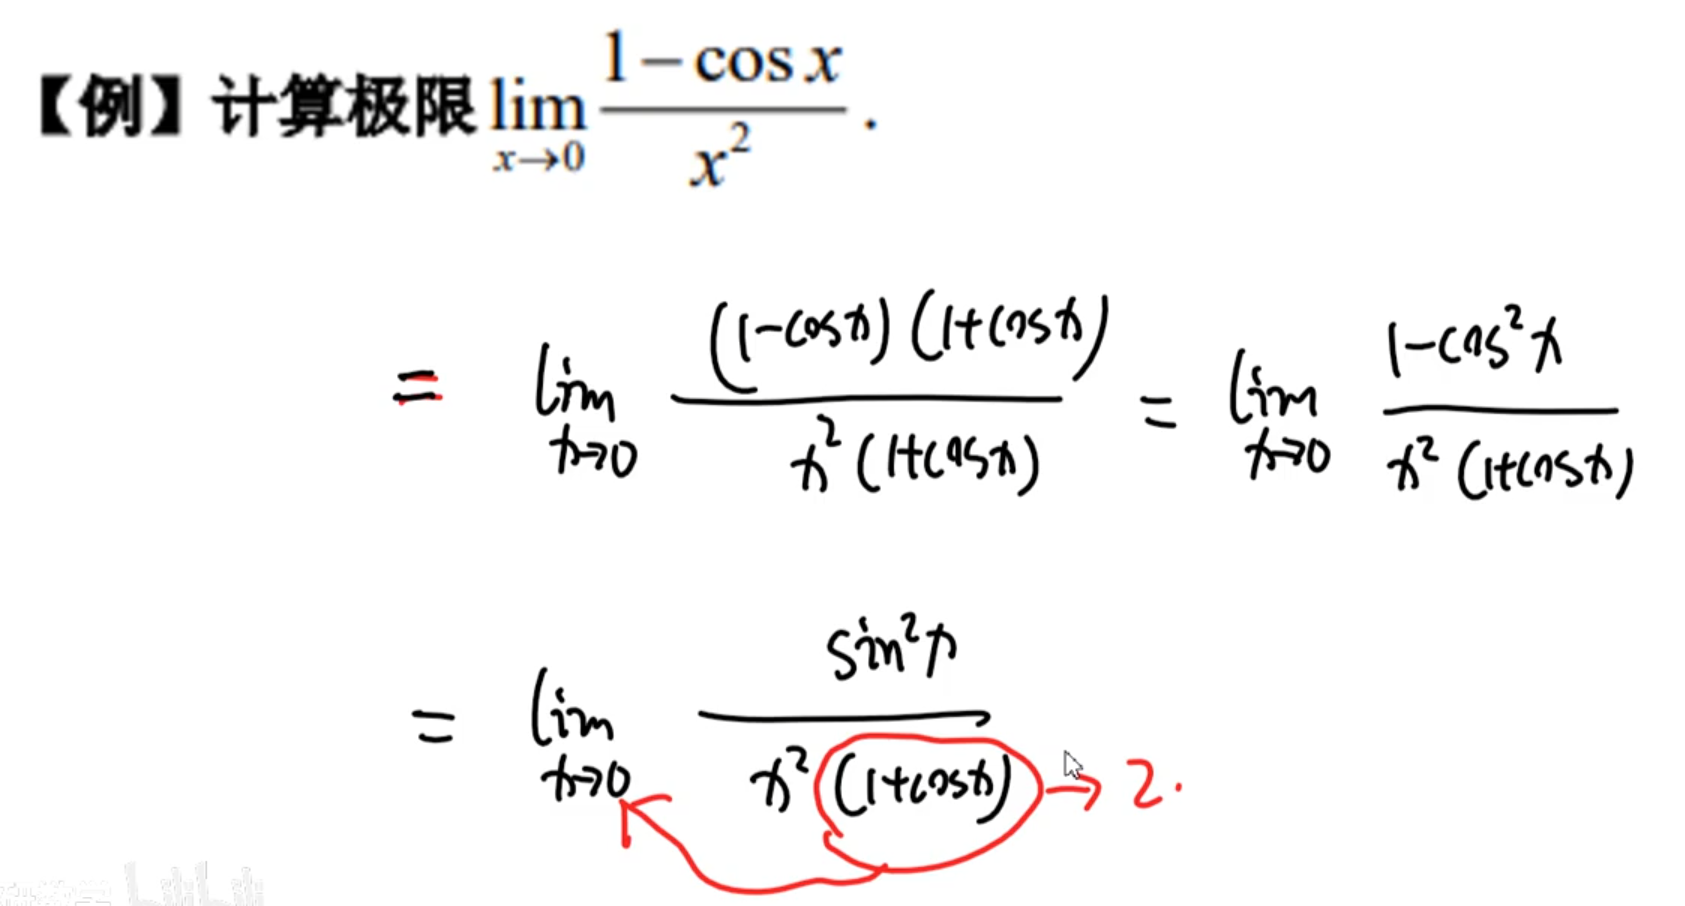 【例】计算极限 lim x→0 (1−cos x)/x² .
= lim x→0 (1-cosx)(1+cosx)/x²(1+cosx) = lim x→0 1-cos²x/x²(1+cosx)
= lim x→0 sin²x/x²(1+cosx) → 2.